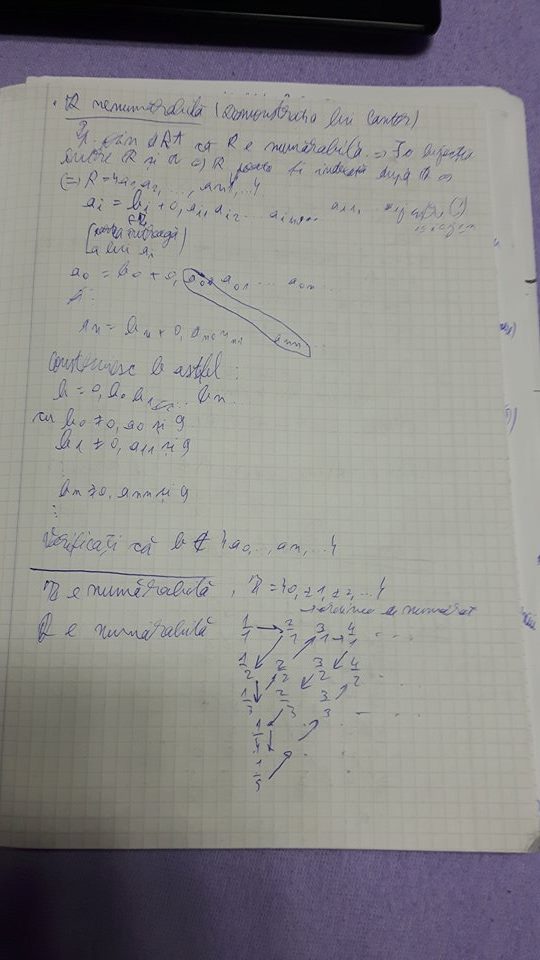 . R nenumărabilă (Demonstrația lui Cantor)
Pp. prin dRA că R e numărabilă => ∃ o bijecție
între R și N => R poate fi indexată după N
(=) R = {a0, a1, ..., an, ...}
ai = bi + 0, ai1 ai2 ... ain...
[partea întreagă
a lui ai]
a0 = b0 + 0, a00 a01 ... a0n ...
an = bn + 0, an0 an1 ann
Construiesc b astfel:
b = 0, b0 b1 ... bn..
cu b0 ≠ 0, a00 și 9
b1 ≠ 0, a11 și 9
bn ≠ 0, ann și 9
⋮
Verificați că b ∉ {a0, .., an, ..}
Z e numărabilă , Z = {0, ±1, ±2, ...}
→ ordinea de numărat
Q e numărabilă 1/1 → 2/1 3/1 → 4/1 ...
1/2 2/2 3/2 4/2 ..
1/3 2/3 3/3 - ...
1/4
1/5